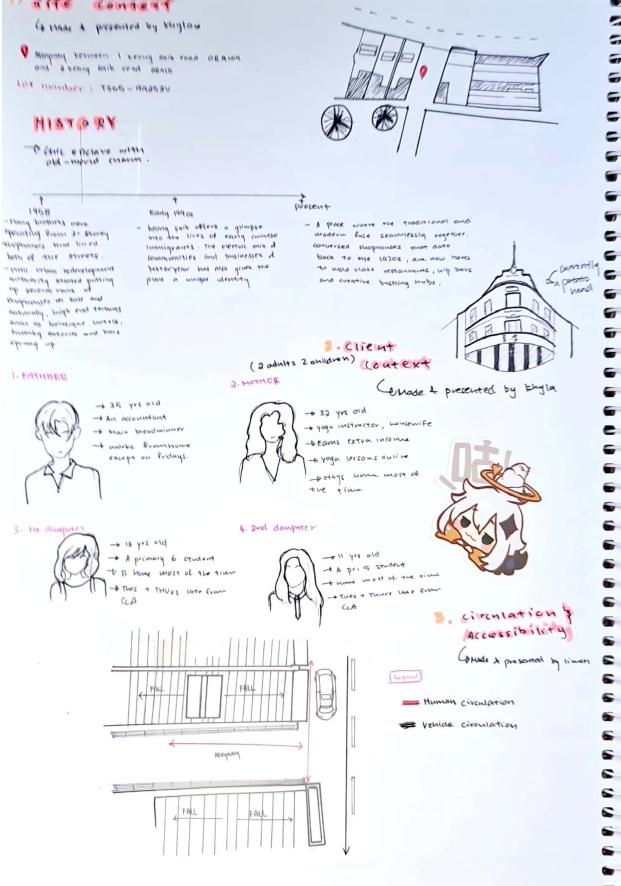 Site Context
Made & presented by
Alleyway between 1 keong saik road
and keong saik road
Lot number : TS05-
HISTORY
enclave with
old-world charm.
present
Early 1990s
- keong saik offers a glimpse
into the lives of early chinese
immigrants. The eclectic mix of
communities and businesses of
yesteryear has also given the
place a unique identity
- A place where the traditional and
modern fuse seamlessly together.
conversed shophouses that date
back to the 1920s, are now homes
to world class restaurants, hip bars
and creative bustling hubs.
- Many brothels were
operating from 3-storey
shophouses that lined
both of the streets.
urban redevelopment
authority started putting
up several rows of
shophouses on sale and
naturally, high end tenants
such as boutique hotels,
eateries and bars
opening up
currently
a potato
head
2. Client
Context
(2 adults 2 children)
Made & presented by khyla
1. FATHHER
35 yrs old
An accountant
Main breadwinner
works from home
except on fridays.
2. MOTHER
32 yrs old
yoga instructor, housewife
Earns extra income
yoga lessons online
stays home most of
the time
咕
3. 1st daughter
yrs old
A primary 6 student
Is home most of the time
Tues + THURS late from
CCA
4. 2nd daughter
11 yrs old
A pri 5 student
home most of the time
Tues + Thurs late from
CCA
3. Circulation &
Accessibility
Made & presented by limen
Legend
Human circulation
Vehicle circulation
FALL
FALL
Alleyway
FALL
FALL